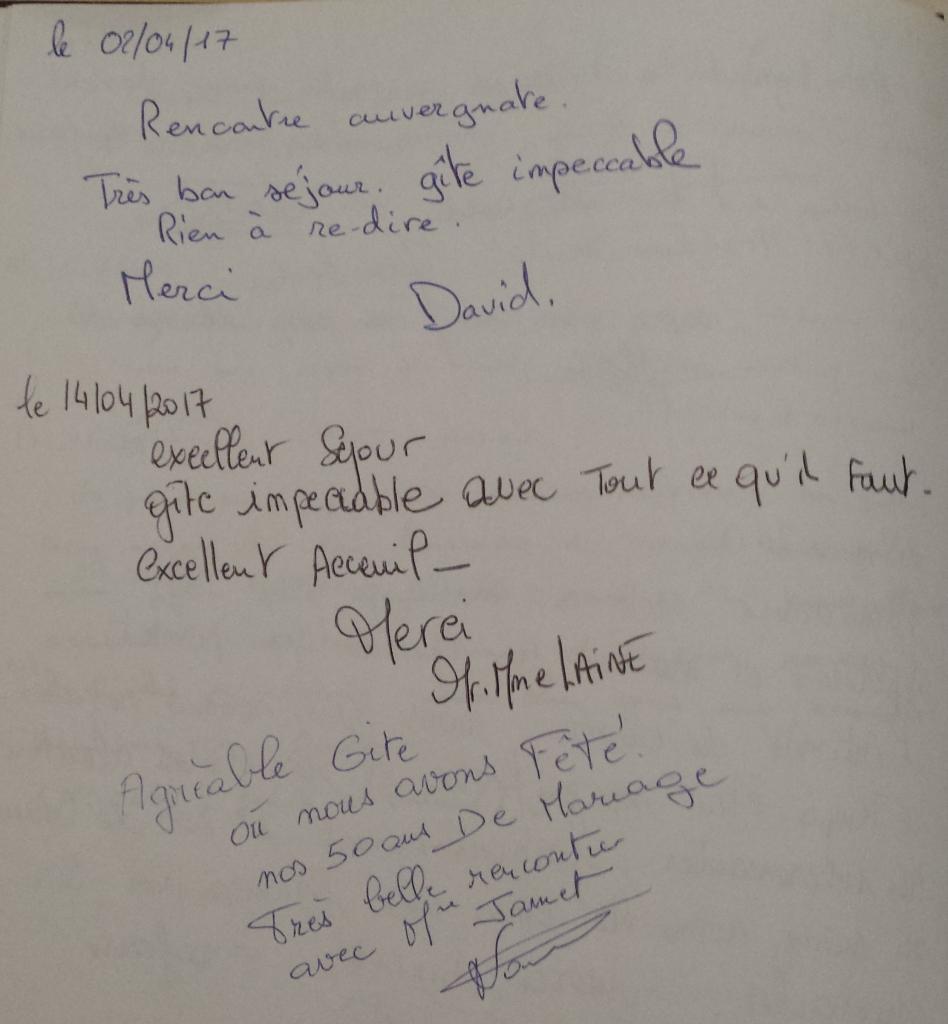 le 02/04/17
Rencontre auvergnate.
Très bon séjour. gîte impeccable
Rien à re-dire.
Merci
David.
le 14/04/2017
excellent Séjour
gîte impeccable avec Tout ce qu'il Faut.
excellent Acceuil –
Merci
Mr. Mme LAiNE
Agréable Gite
où nous avons Fêté
nos 50 ans De Mariage
Très belle rencontre
avec Mr Jamet